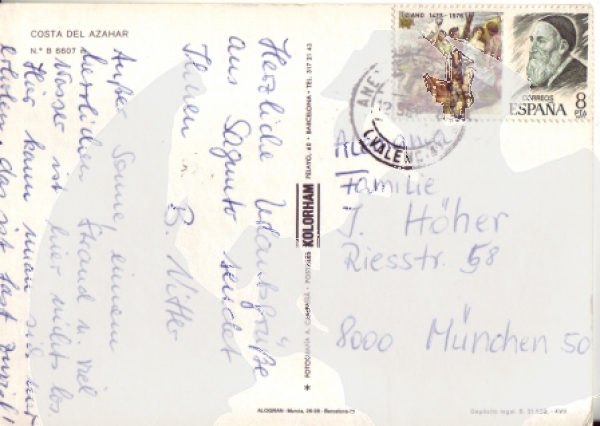 COSTA DEL AZAHAR
N.º B 6607
Herzliche Urlaubsgrüße
aus Sagunto sendet
Ihnen
B. Witter
Außer Sonne, einem
herrlichen Strand u. viel
Wasser ist hier nichts los.
Hier kann man sich nur
erholen, das ist fast zuviel!
FOTOGRAFIA A. CAMPAÑÁ - POSTALES KOLORHAM PELAYO, 60 - BARCELONA - TEL. 317 21 43
TIZIANO 1478-1576
CORREOS
ESPAÑA 8
PTA
(VALENCIA)
Alemania
Familie
J. Höher
Riesstr. 58
8000 München 50
ALOGRAN - Murcia, Barcelona
Depósito legal B.